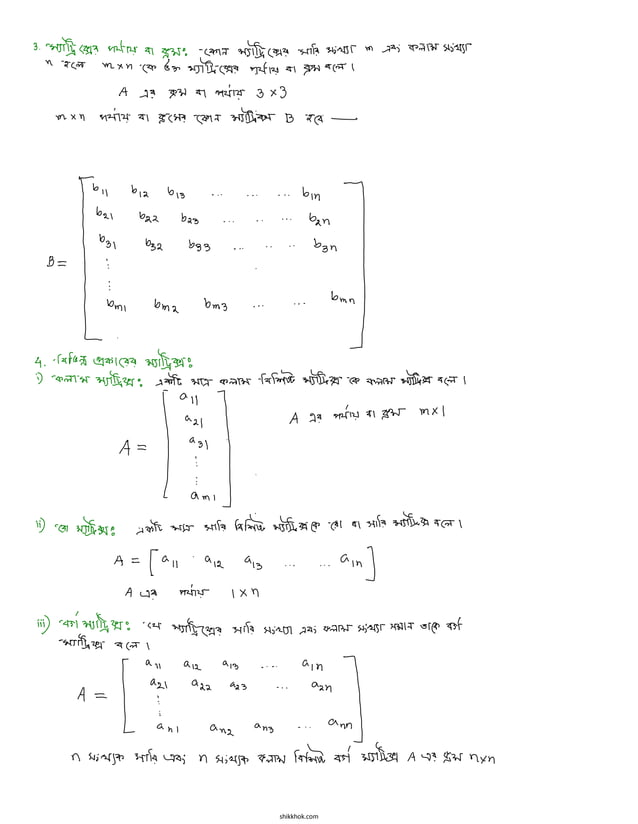 3. ম্যাট্রিক্সের পর্যায় বা ক্রমঃ কোন ম্যাট্রিক্সের সারি সংখ্যা m এবং কলাম সংখ্যা
n হলে m×n কে উক্ত ম্যাট্রিক্সের পর্যায় বা ক্রম বলে।
A এর ক্রম বা পর্যায় 3×3
m×n পর্যায় বা ক্রমের কোন ম্যাট্রিক্স B হবে —
b11 b12 b13 ... ... ... b1n
b21 b22 b23 ... .. .. b2n
b31 b32 b33 ... .. .. b3n
B =
⋮
⋮
bm1 bm2 bm3 ... ... bmn
4. বিভিন্ন প্রকারের ম্যাট্রিক্সঃ
i) কলাম ম্যাট্রিক্সঃ একটি মাত্র কলাম বিশিষ্ট ম্যাট্রিক্স কে কলাম ম্যাট্রিক্স বলে।
a11
a21
A = a31
⋮
⋮
am1
A এর পর্যায় বা ক্রম m×1
ii) রো ম্যাট্রিক্সঃ একটি মাত্র সারি বিশিষ্ট ম্যাট্রিক্সকে রো বা সারি ম্যাট্রিক্স বলে।
A = [a11 a12 a13 ... ... a1n]
A এর পর্যায় 1×n
iii) বর্গ ম্যাট্রিক্সঃ যে ম্যাট্রিক্সের সারি সংখ্যা এবং কলাম সংখ্যা সমান তাকে বর্গ
ম্যাট্রিক্স বলে।
a11 a12 a13 .... a1n
a21 a22 a23 ... a2n
A =
⋮
an1 an2 an3 ... ann
n সংখ্যক সারি এবং n সংখ্যক কলাম বিশিষ্ট বর্গ ম্যাট্রিক্স A এর ক্রম n×n
shikkhok.com